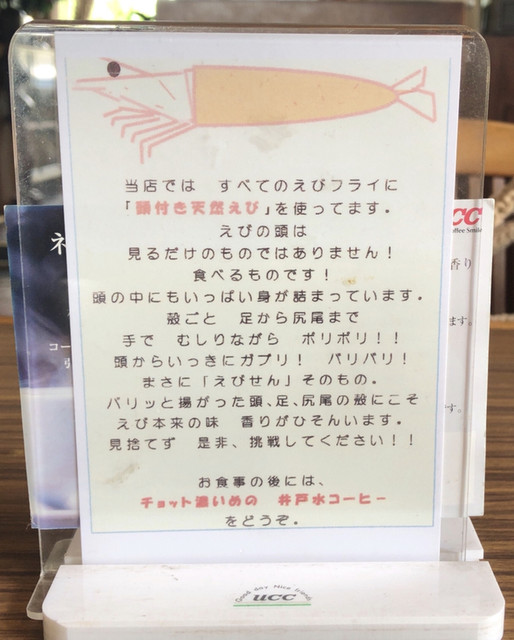 当店では すべてのえびフライに
「頭付き天然えび」を使ってます。
えびの頭は
見るだけのものではありません！
食べるものです！
頭の中にもいっぱい身が詰まっています。
殻ごと 足から尻尾まで
手で むしりながら ポリポリ！！
頭からいっきにガブリ！ バリバリ！
まさに「えびせん」そのもの。
パリッと揚がった頭、足、尻尾の殻にこそ
えび本来の味 香りがひそんいます。
見捨てず 是非、挑戦してください！！
お食事の後には、
チョット濃いめの 井戸水コーヒー
をどうぞ。
CC
ffee Smile
香り
ます。
す。
コー
Good day Nice smile
UCC